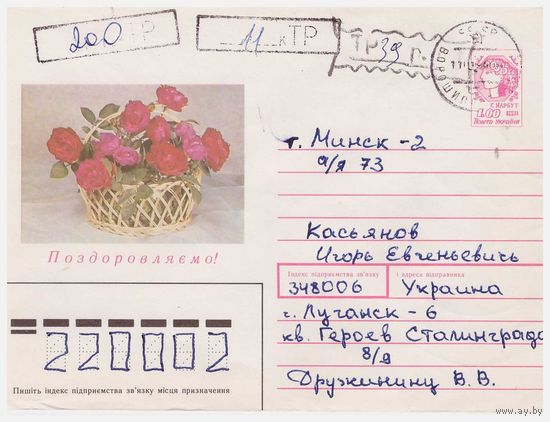 200 ТР
11 к ТР
ТР 39 г.
СССР
С. НАРБУТ
1.00
Пошта України
г. Минск - 2
а/я 73
Касьянов
Игорь Евгеньевичь
Поздоровляємо!
Індекс підприємства зв'язку і адреса відправника
348006 Украина
г. Луганск - 6
кв. Героев Сталинграда
8/9
Дружинину В. В.
220002
Пишіть індекс підприємства зв'язку місця призначення
www.ay.by